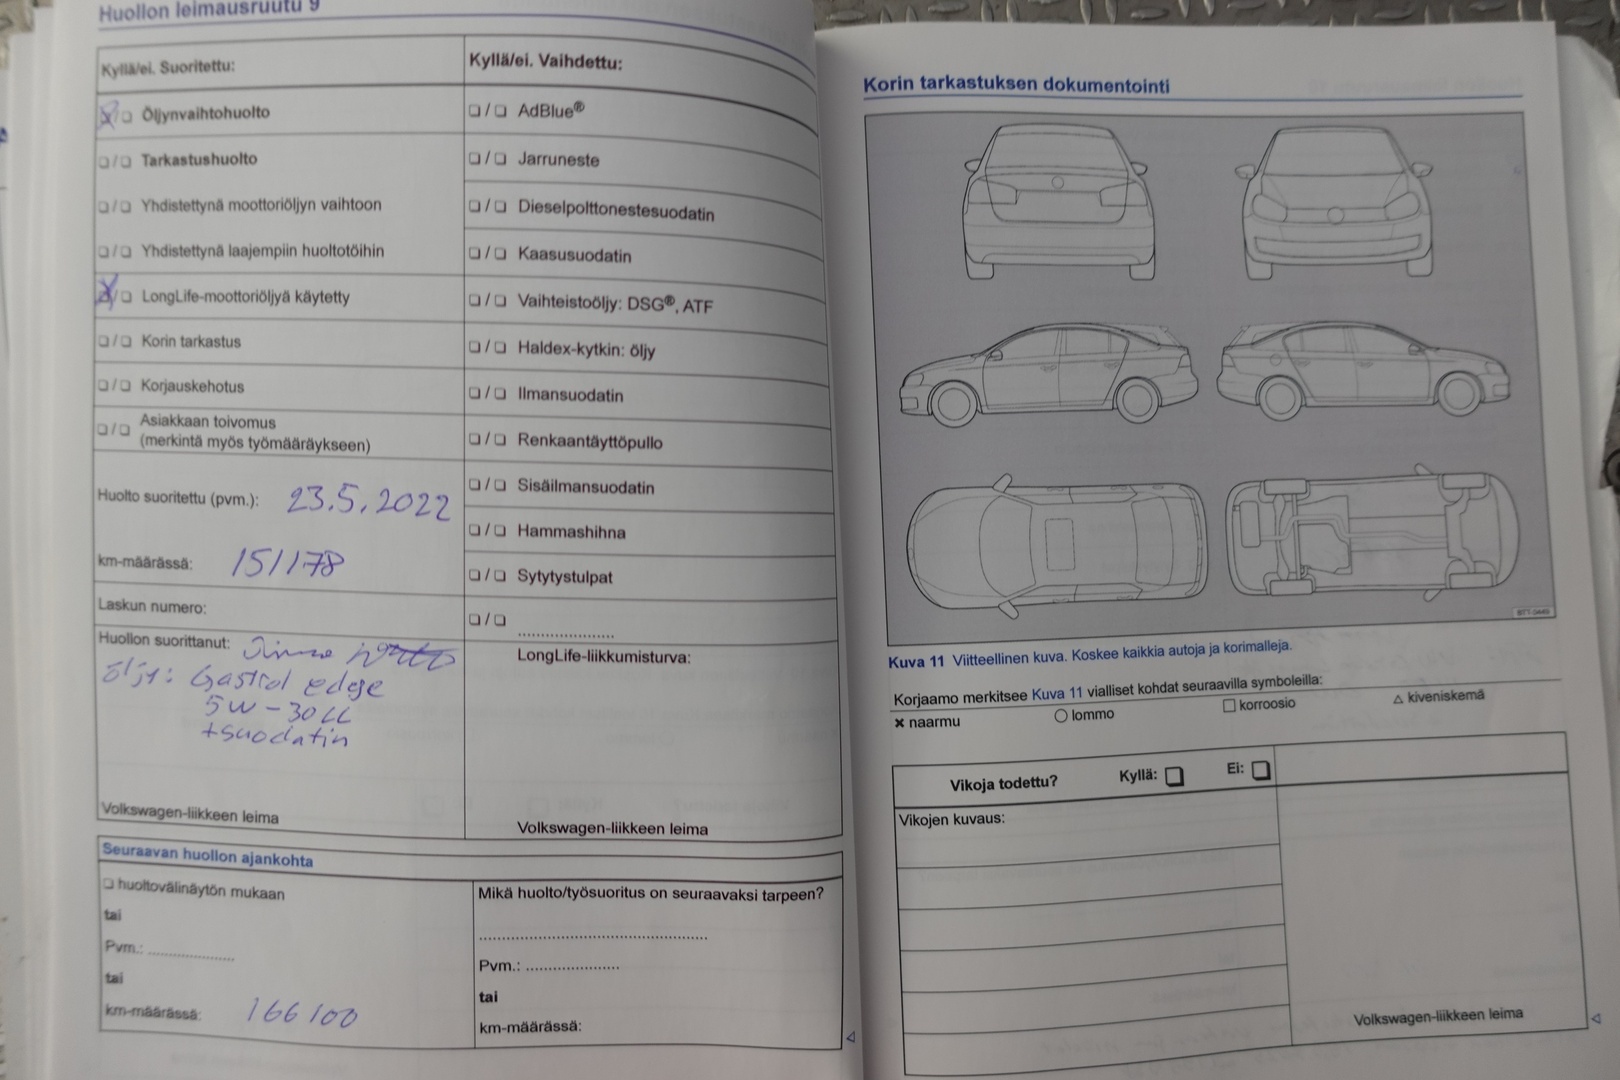 Huollon leimausruutu 9
Kyllä/ei. Suoritettu:
❏/❏ Öljynvaihtohuolto
❏/❏ Tarkastushuolto
❏/❏ Yhdistettynä moottoriöljyn vaihtoon
❏/❏ Yhdistettynä laajempiin huoltotöihin
❏/❏ LongLife-moottoriöljyä käytetty
❏/❏ Korin tarkastus
❏/❏ Korjauskehotus
❏/❏ Asiakkaan toivomus
(merkintä myös työmääräykseen)
Huolto suoritettu (pvm.): 23.5.2022
km-määrässä: 151178
Laskun numero:
Huollon suorittanut:
öljy: Castrol edge
5W-30 LL
+suodatin
Volkswagen-liikkeen leima
Kyllä/ei. Vaihdettu:
❏/❏ AdBlue®
❏/❏ Jarruneste
❏/❏ Dieselpolttonestesuodatin
❏/❏ Kaasusuodatin
❏/❏ Vaihteistoöljy: DSG®, ATF
❏/❏ Haldex-kytkin: öljy
❏/❏ Ilmansuodatin
❏/❏ Renkaantäyttöpullo
❏/❏ Sisäilmansuodatin
❏/❏ Hammashihna
❏/❏ Sytytystulpat
❏/❏ ......................
LongLife-liikkumisturva:
Volkswagen-liikkeen leima
Seuraavan huollon ajankohta
❏ huoltovälinäytön mukaan
tai
Pvm.: ....................
tai
km-määrässä: 166100
Mikä huolto/työsuoritus on seuraavaksi tarpeen?
....................................................
Pvm.: .....................
tai
km-määrässä:
Korin tarkastuksen dokumentointi
BTT-0449
Kuva 11 Viitteellinen kuva. Koskee kaikkia autoja ja korimalleja.
Korjaamo merkitsee Kuva 11 vialliset kohdat seuraavilla symboleilla:
✖ naarmu ○ lommo □ korroosio △ kiveniskemä
Vikoja todettu? Kyllä: ❏ Ei: ❏
Vikojen kuvaus:
Volkswagen-liikkeen leima